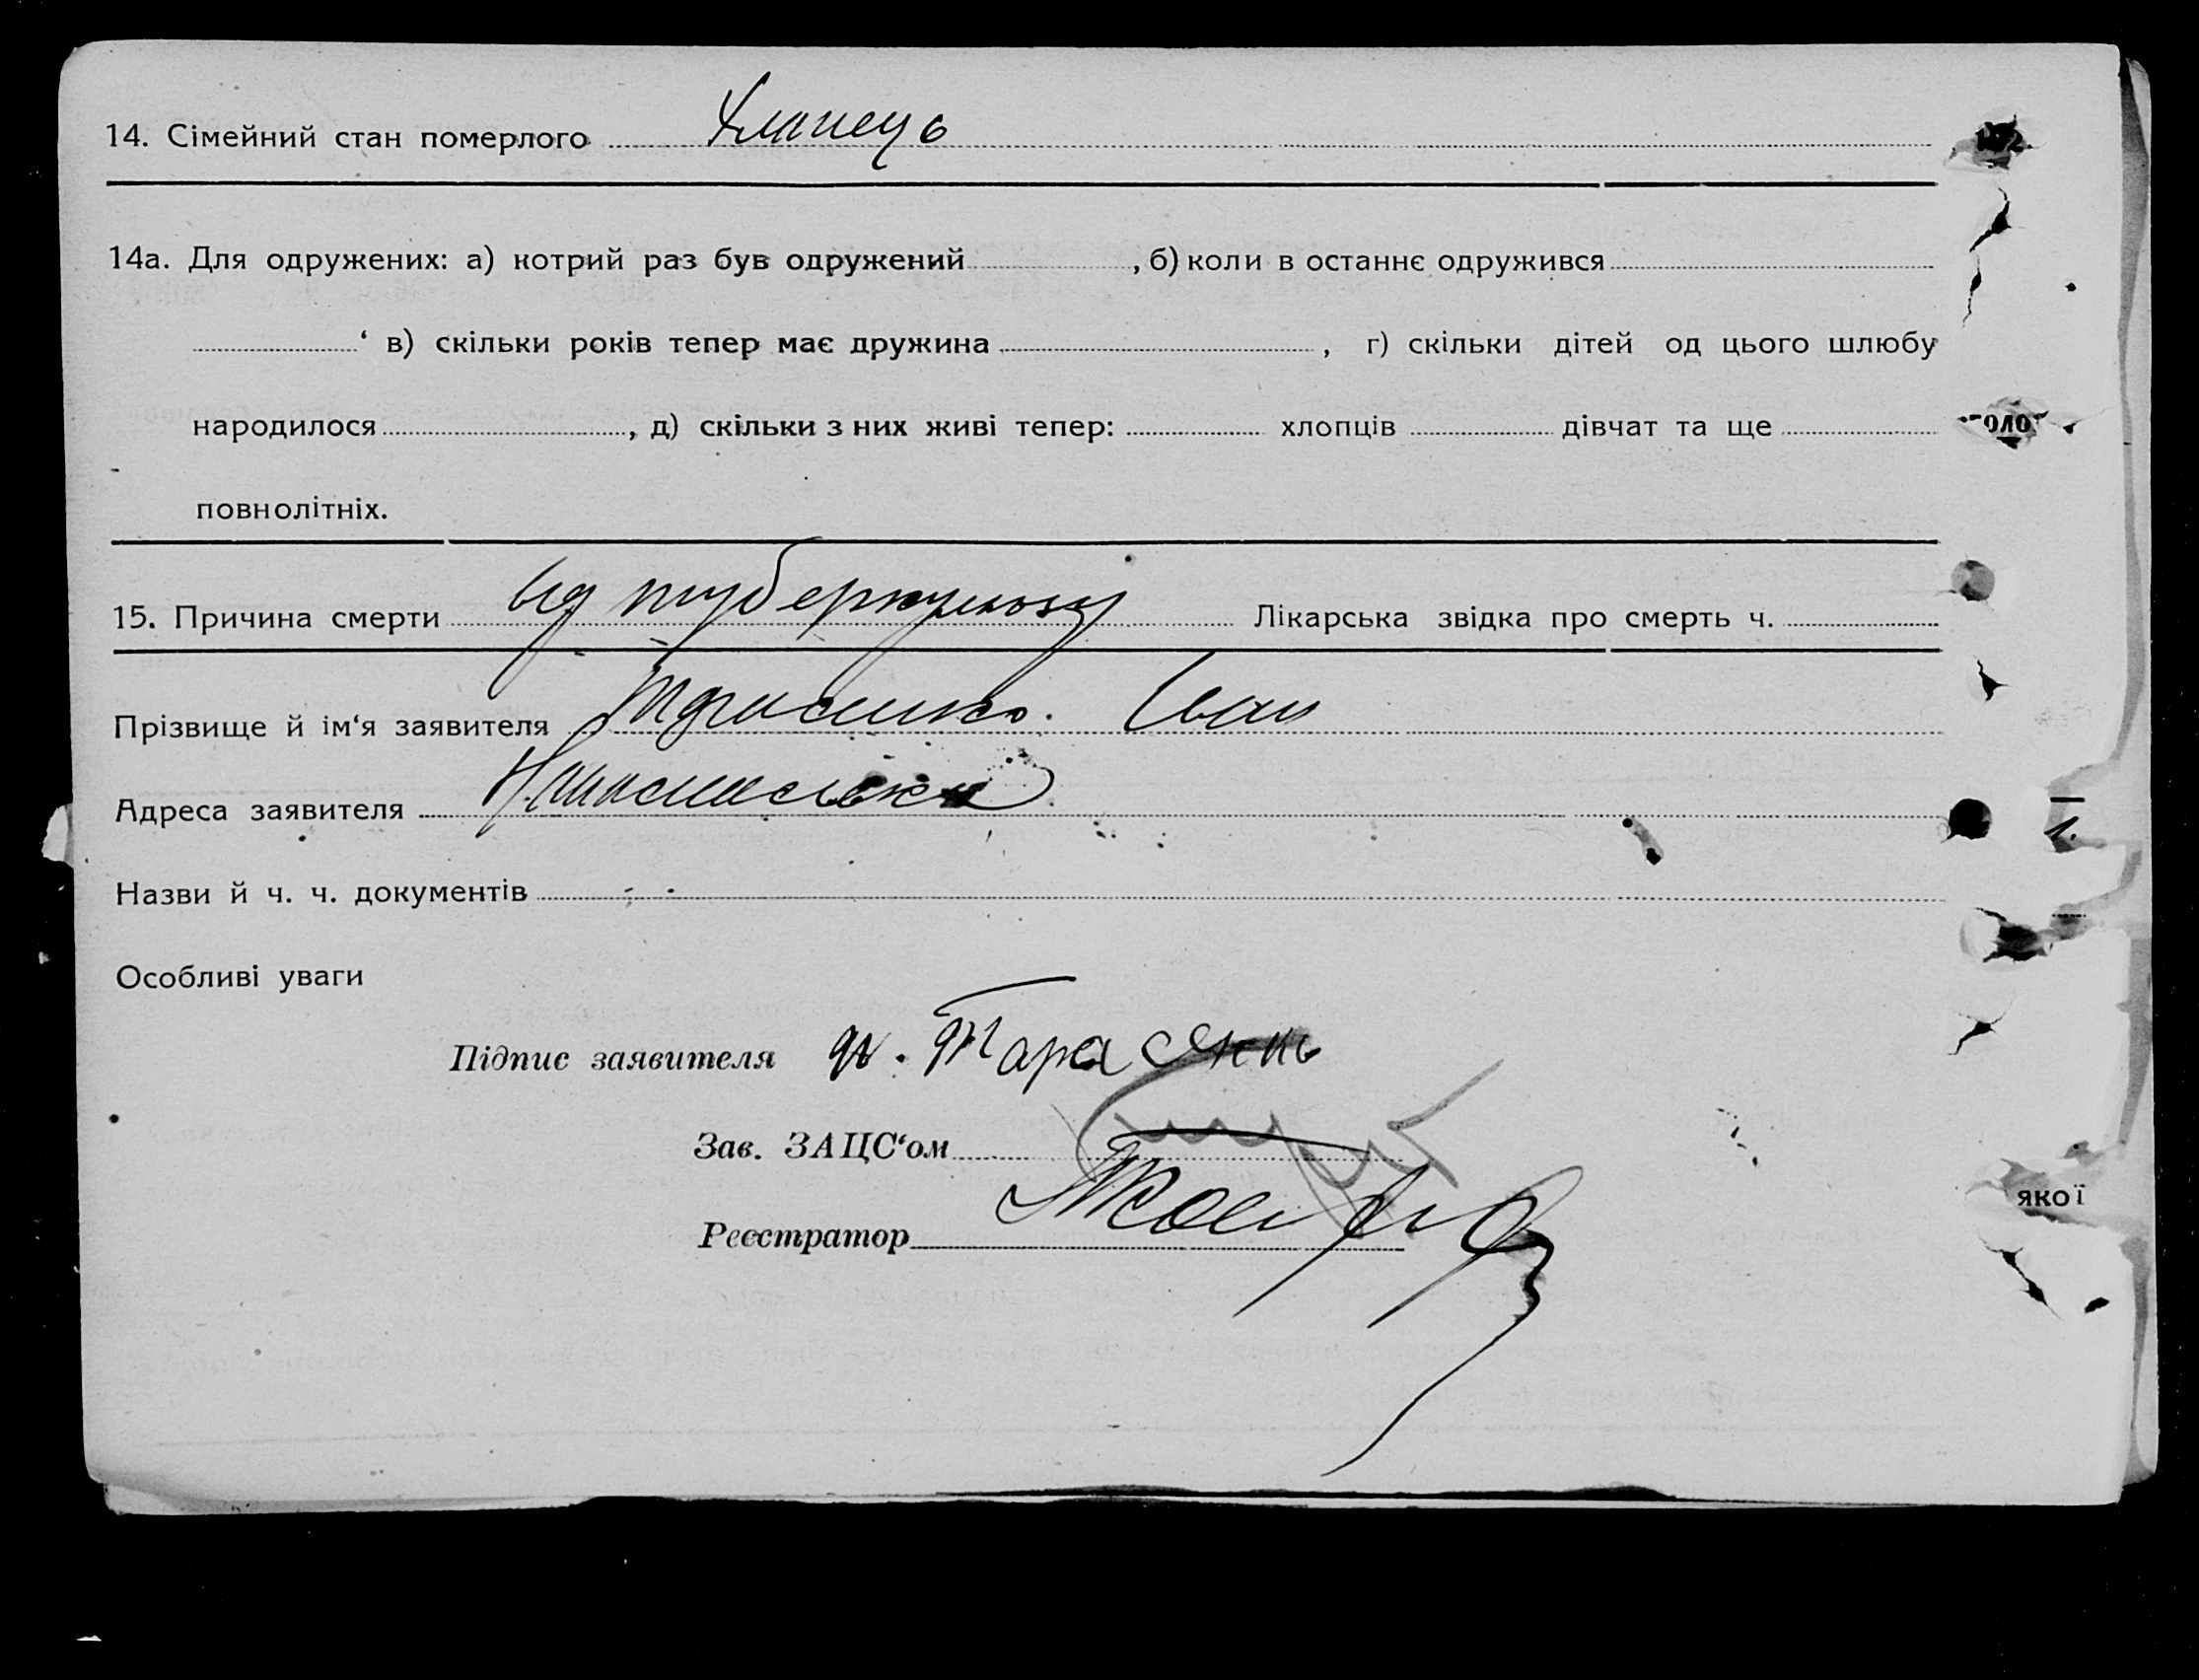 14. Сімейний стан померлого Хлопець
14а. Для одружених: а) котрий раз був одружений , б) коли в останнє одружився
‘ в) скільки років тепер має дружина , г) скільки дітей од цього шлюбу
народилося , д) скільки з них живі тепер: хлопців дівчат та ще
повнолітніх.
15. Причина смерти від туберкульозу Лікарська звідка про смерть ч.
Прізвище й ім‘я заявителя Тарасенко. Іван
Адреса заявителя
Назви й ч. ч. документів
Особливі уваги
Підпис заявителя Тарасенко
Зав. ЗАЦС‘ом
Реєстратор
якої
1.